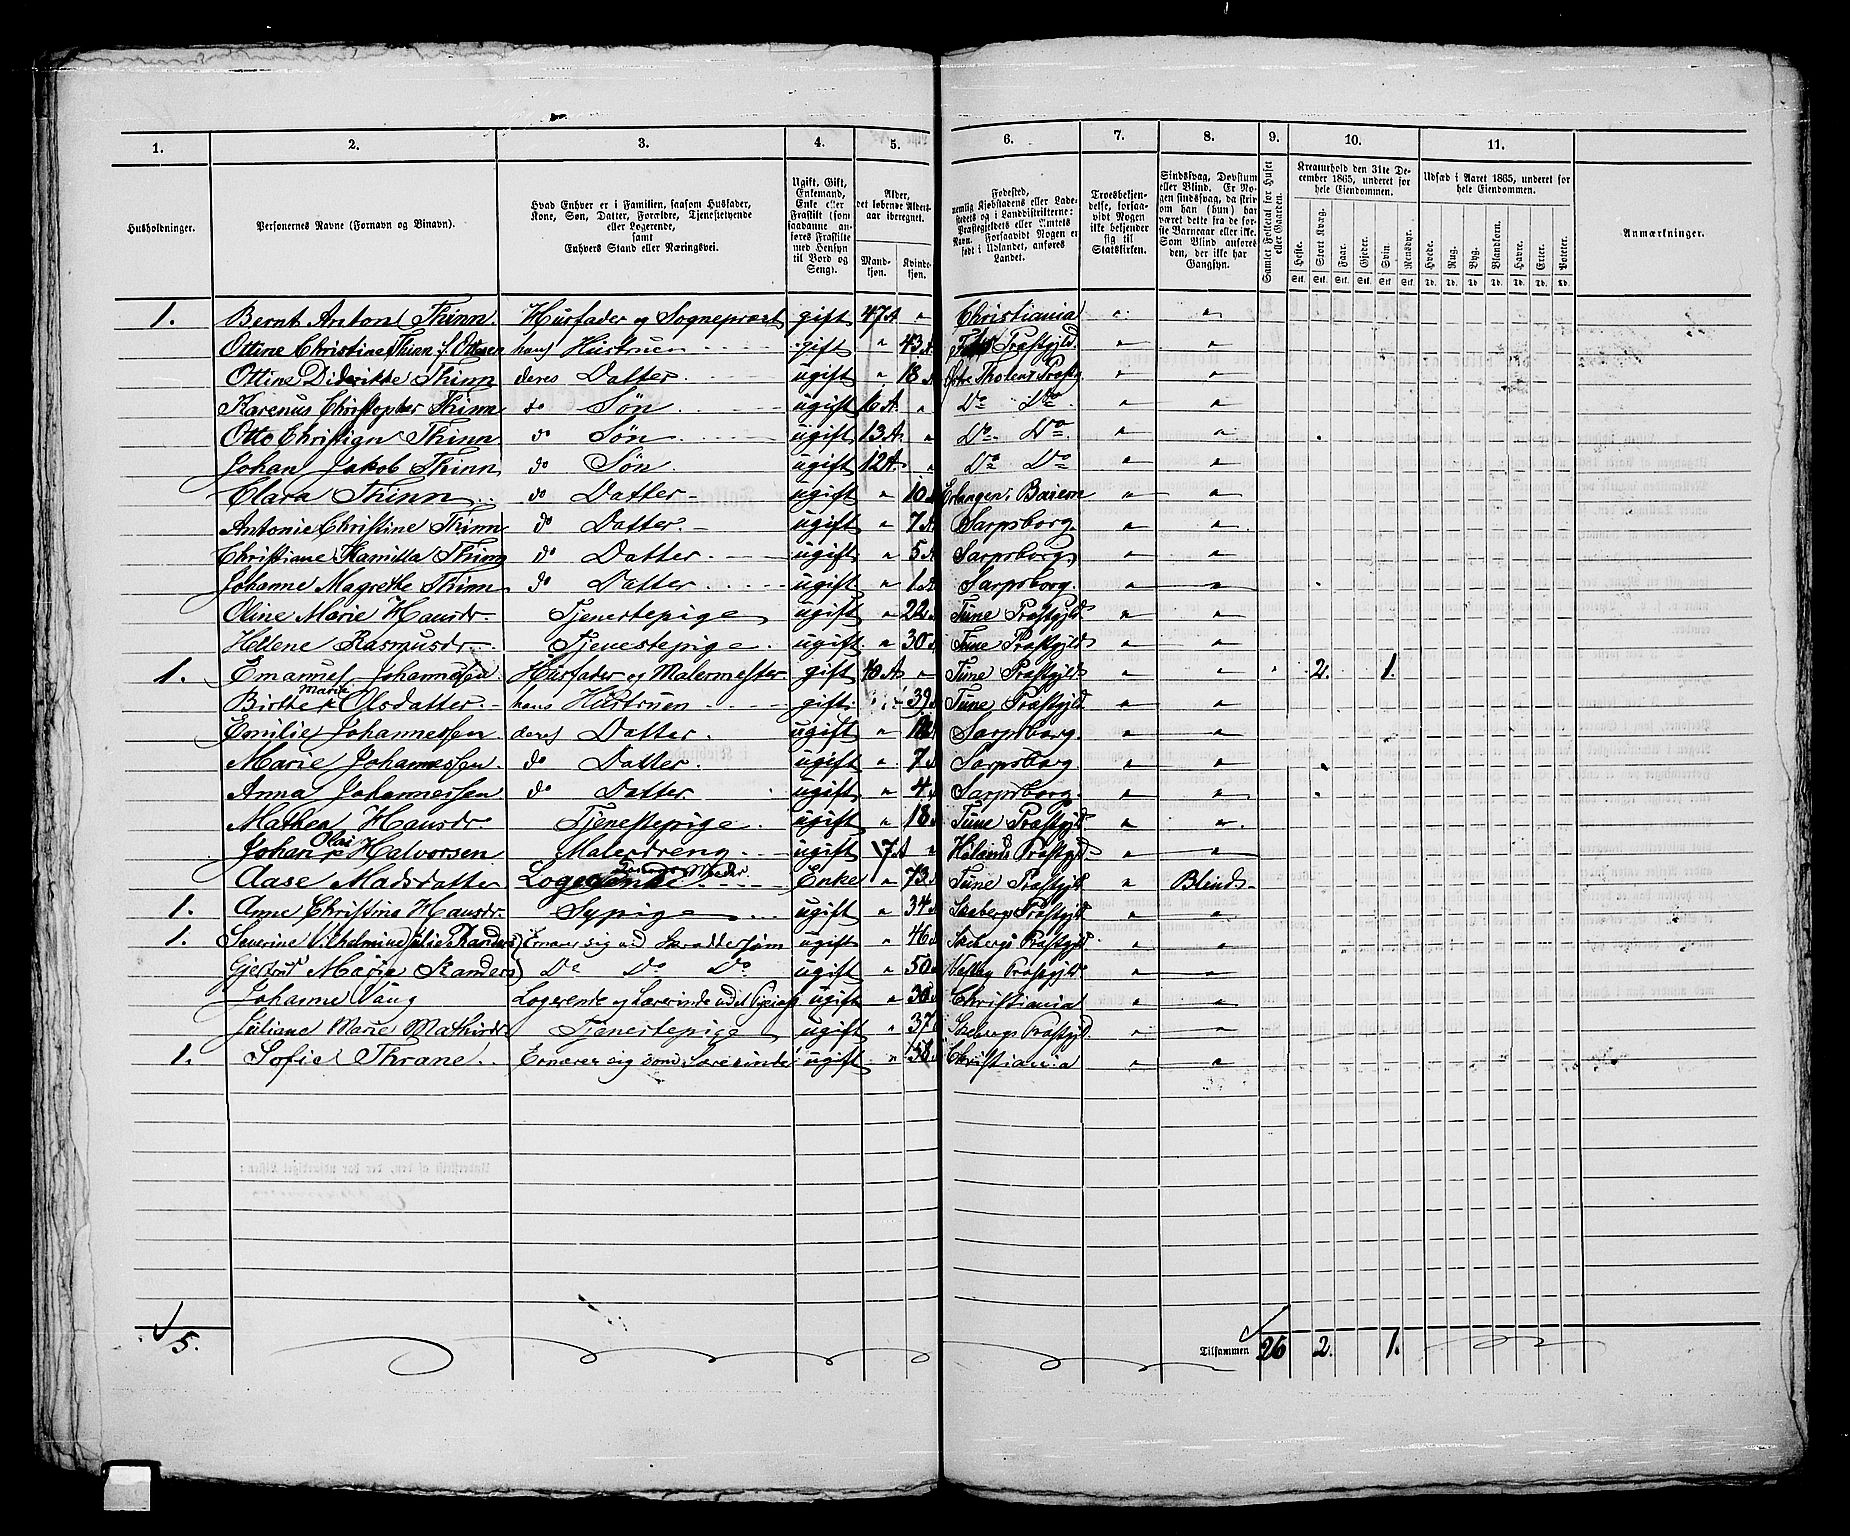 1. 2. 3. 4. 5. 6. 7. 8. 9. 10. 11.
Husholdninger. Personernes Navne (Fornavn og Binavn). Hvad Enhver er i Familien, saasom Husfader, Kone, Søn, Datter, Forældre, Tjenestetyende eller Logerende, samt Enhvers Stand eller Næringsvei. Ugift, Gift, Enkemand, Enke eller Fraskilt (som saadanne anføres Fraskilte med Hensyn til Bord og Seng). Alder, det løbende Alders-aar iberegnet. Mandkjøn. Kvindekjøn. Fødested, nemlig Kjøbstadens eller Ladestedets og i Landdistrikterne: Præstegjeldets eller Amtets Navn. Forsaavidt Nogen er født i Udlandet, anføres Landet. Troesbekjendelse, forsaavidt Nogen ikke bekjender sig til Statskirken. Sindssvag, Døvstum eller Blind. Er Nogen sindssvag, da skrives om han (hun) har været dette fra de første Barneaar eller ikke. Som Blind anføres den, der ikke har Gangsyn. Samlet Folketal for Huset eller Gaarden. Kreaturhold den 31te December 1865, underet for hele Eiendommen. Udsæd i Aaret 1865, underet for hele Eiendommen. Anmærkninger.
Heste. Stort Kvæg. Faar. Gjeder. Svin. Rensdyr. Hvede. Rug. Byg. Blandkorn. Havre. Erter. Poteter.
1. Bernt Anton Thinn. Husfader og Sognepræst gift 47 A " Christiania " "
Ottine Christine Thinn f. Ottesen hans Hustruen gift " 43 A Præstgjld. " "
Ottine Didrikke Thinn deres Datter. ugift " 18 A " "
Karenus Christopher Thinn do Søn. ugift 16 A " Do Do " "
Otto Christian Thinn do Søn ugift 13 A " Do Do " "
Johan Jakob Thinn do Søn ugift 12 A " Do Do " "
Clara Thinn do Datter ugift " 10 A Erlangen i Baiern " "
Antonie Christine Thinn do Datter ugift " 7 A Sarpsborg. " "
Christiane Kamilla Thinn do Datter. ugift " 5 A Sarpsborg " "
Johanne Magrethe Thinn do Datter ugift " 1 A Sarpsborg. " "
Oline Marie Hansdr. Tjenestepige ugift " 22 A Tune Præstgjld " "
Hellene Rasmusdr. Tjenestepige ugift " 30 A Tune Præstgjld " "
1. Emanuel Johannesen. Husfader og Malermester gift 40 A " Tune Præstgjld " " 2. 1.
Birthe Marie Olsdatter. hans Hustruen gift " 39 A Tune Præstgjld. " "
Emilie Johannessen deres Datter. ugift " Sarpsborg. " "
Marie Johannessen. do Datter. ugift " 7 A Sarpsborg " "
Anna Johannessen do Datter ugift " 4 A Sarpsborg. " "
Mathea Hansdr. Tjenestepige ugift " 18 A Tune Præstgjld " "
Johan Olai Halvorsen Malerdreng ugift 17 A " Præstgjld " "
Aase Madsdatter Logerende Enke " 73 A Tune Præstgjld " Blind
1. Anne Christina Hansdr. Sypige ugift " 34 A Skebergs Præstgjld " "
1. Severine Vilhelmine Julie Randers Ernærer sig ved Skræddersøm ugift " 46 A Skebergs Præstgjld " "
Gjertrud Marie Randers Do Do Do ugift " 50 A Vestby Præstgjld. " "
Johanne Vang Logerende og Lærerinde ugift " 30 A Christiania " "
Juliane Marie Tjenestepige ugift " 37 A Skebergs Præstgjld. " "
1. Sofie Thrane. Ernærer sig som Lærerinde ugift " 58 A Christiania " "
5. Tilsammen 26 2. 1.